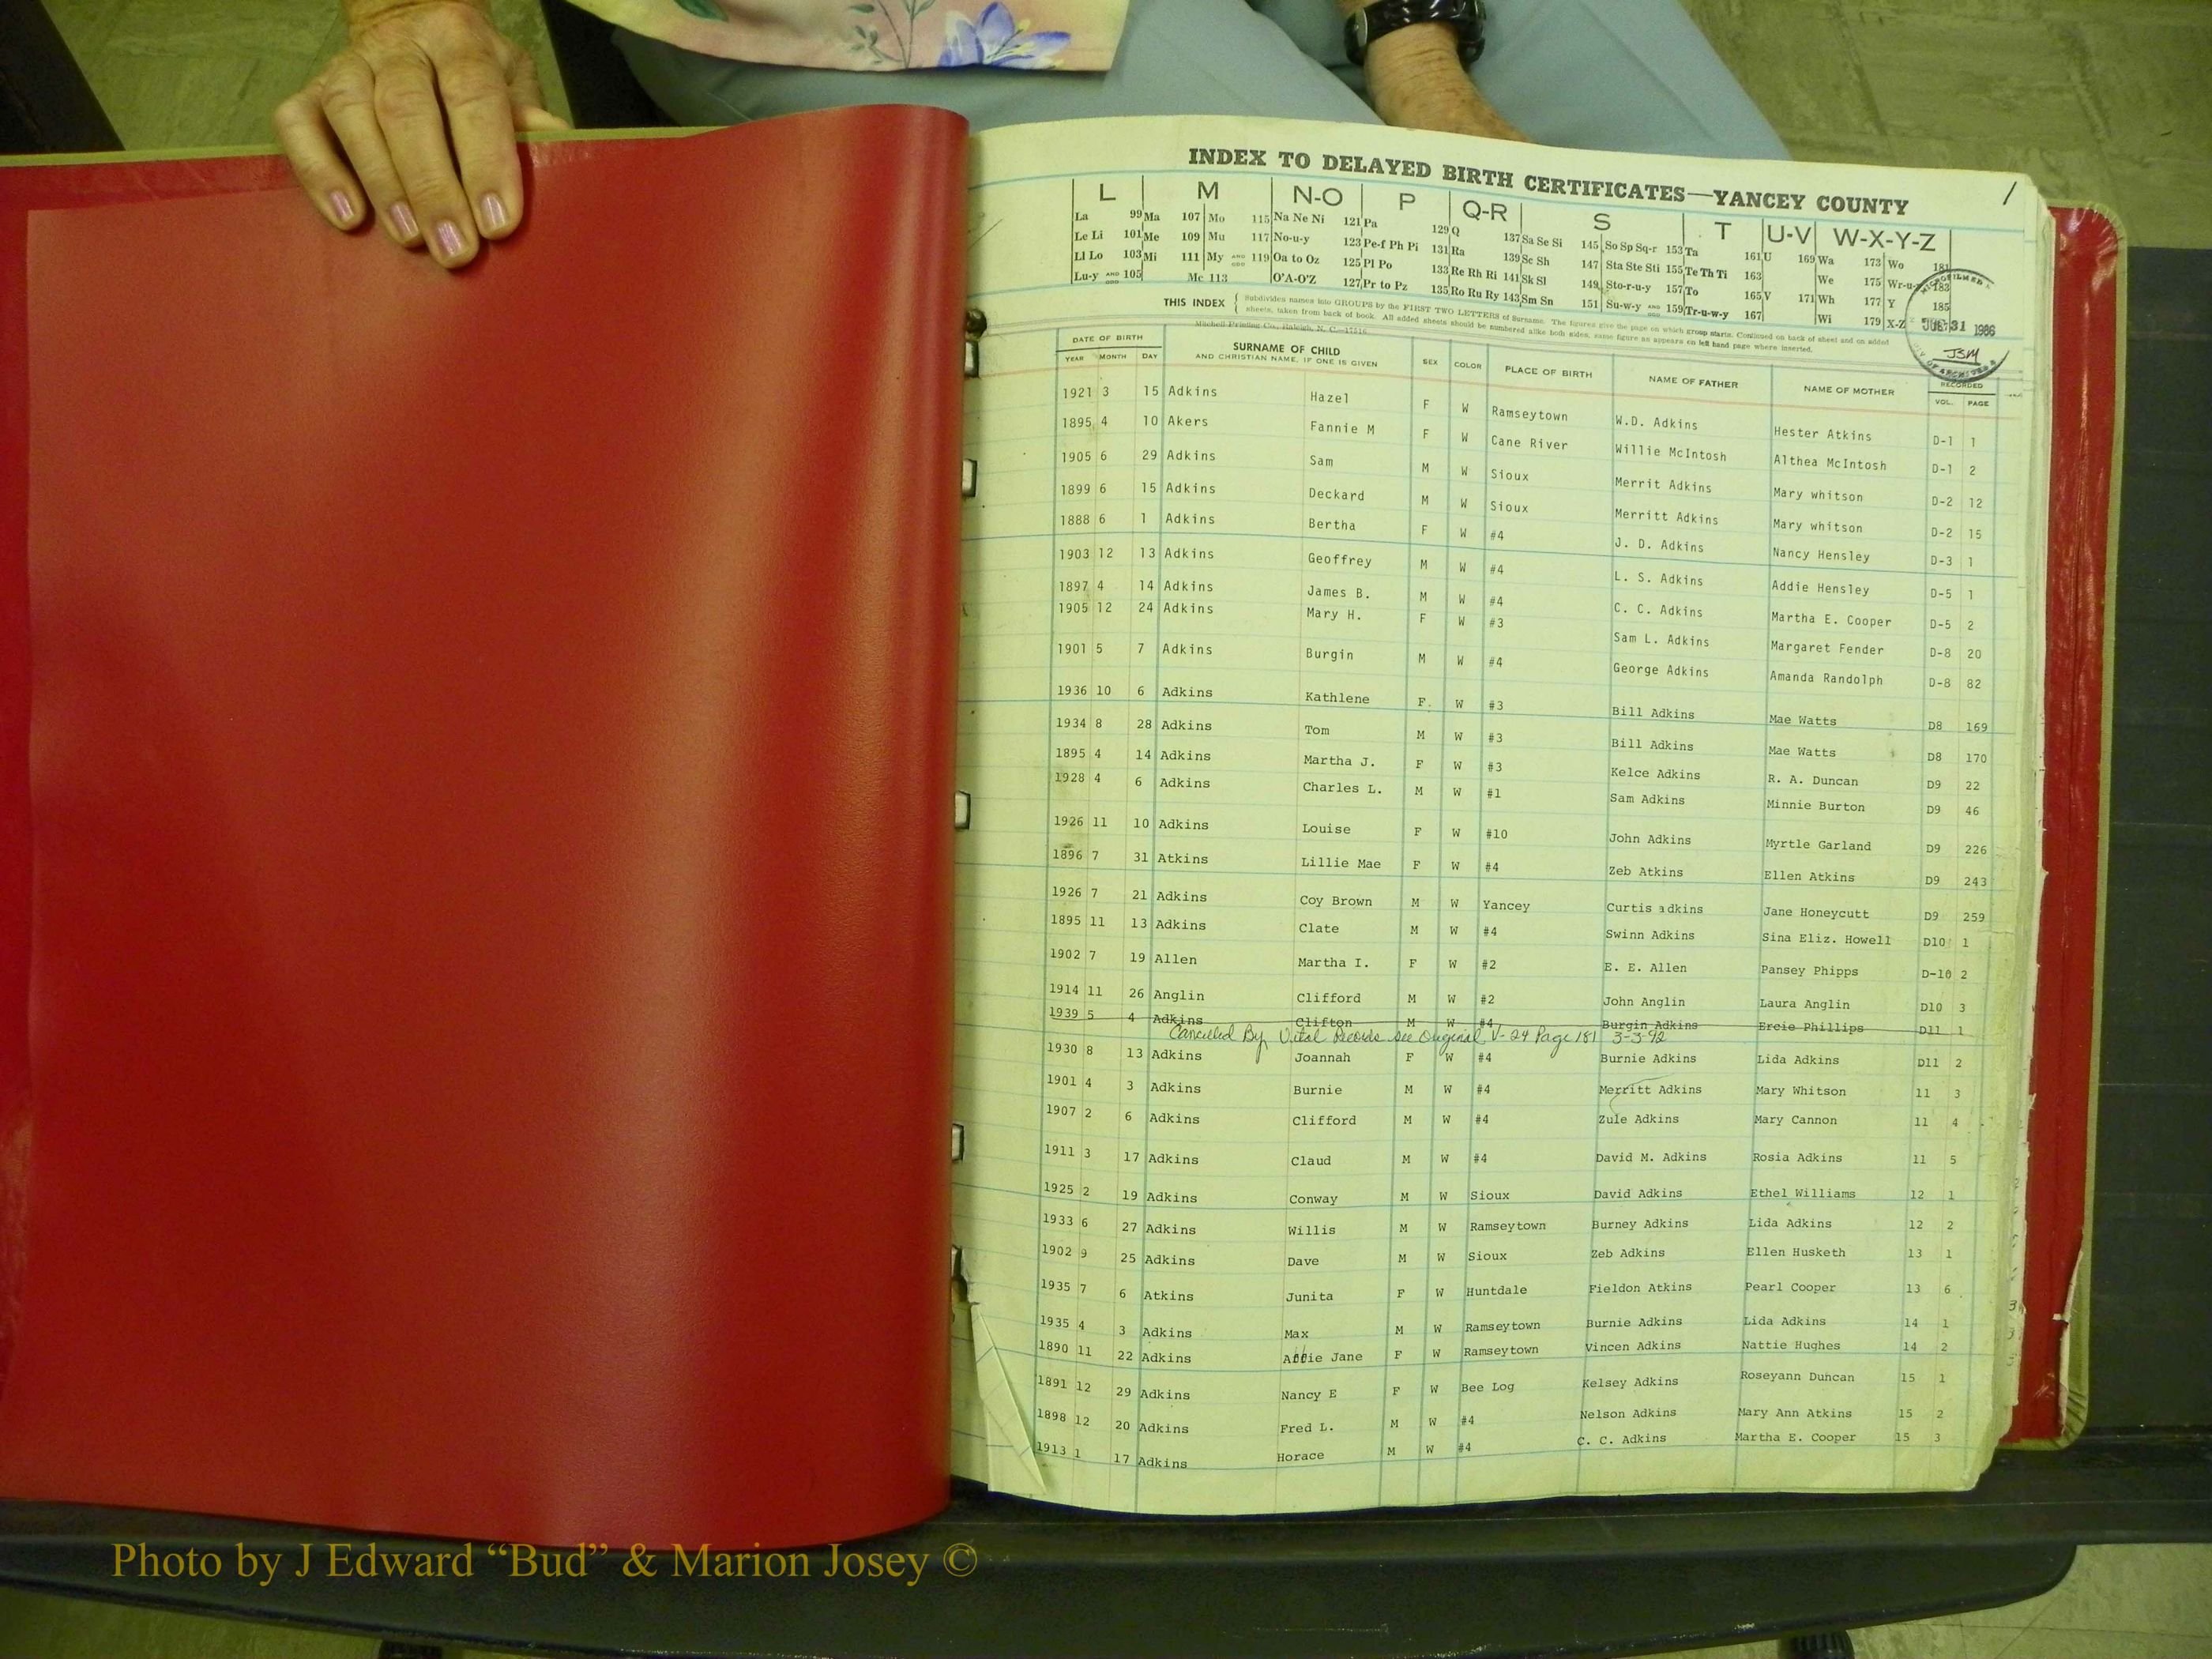 INDEX TO DELAYED BIRTH CERTIFICATES—YANCEY COUNTY
1
L M N-O P Q-R S T U-V W-X-Y-Z
La 99 Ma 107 Mo 115 Na Ne Ni 121 Pa 129 Q 137 Sa Se Si 145 So Sp Sq-r 153 Ta 161 U 169 Wa 173 Wo 181
Le Li 101 Me 109 Mu 117 No-u-y 123 Pe-f Ph Pi 131 Ra 139 Sc Sh 147 Sta Ste Sti 155 Te Th Ti 163 We 175 Wr-u- 183
Ll Lo 103 Mi 111 My AND ODD 119 Oa to Oz 125 Pl Po 133 Re Rh Ri 141 Sk Sl 149 Sto-r-u-y 157 To 165 V 171 Wh 177 Y 185
Lu-y AND ODD 105 Mc 113 O'A-O'Z 127 Pr to Pz 135 Ro Ru Ry 143 Sm Sn 151 Su-w-y AND ODD 159 Tr-u-w-y 167 Wi 179 X-Z
31 1986
JSM
THIS INDEX { Subdivides names into GROUPS by the FIRST TWO LETTERS of Surname. The figures give the page on which group starts. Continued on back of sheet and on added
sheets, taken from back of book. All added sheets should be numbered alike both sides, same figure as appears on left hand page where inserted.
Mitchell Printing Co., Raleigh, N. C.
DATE OF BIRTH SURNAME OF CHILD SEX COLOR PLACE OF BIRTH NAME OF FATHER NAME OF MOTHER RECORDED
YEAR MONTH DAY AND CHRISTIAN NAME, IF ONE IS GIVEN VOL. PAGE
1921 3 15 Adkins Hazel F W Ramseytown W.D. Adkins Hester Atkins D-1 1
1895 4 10 Akers Fannie M F W Cane River Willie McIntosh Althea McIntosh D-1 2
1905 6 29 Adkins Sam M W Sioux Merrit Adkins Mary whitson D-2 12
1899 6 15 Adkins Deckard M W Sioux Merritt Adkins Mary whitson D-2 15
1888 6 1 Adkins Bertha F W #4 J. D. Adkins Nancy Hensley D-3 1
1903 12 13 Adkins Geoffrey M W #4 L. S. Adkins Addie Hensley D-5 1
1897 4 14 Adkins James B. M W #4 C. C. Adkins Martha E. Cooper D-5 2
1905 12 24 Adkins Mary H. F W #3 Sam L. Adkins Margaret Fender D-8 20
1901 5 7 Adkins Burgin M W #4 George Adkins Amanda Randolph D-8 82
1936 10 6 Adkins Kathlene F. W #3 Bill Adkins Mae Watts D8 169
1934 8 28 Adkins Tom M W #3 Bill Adkins Mae Watts D8 170
1895 4 14 Adkins Martha J. F W #3 Kelce Adkins R. A. Duncan D9 22
1928 4 6 Adkins Charles L. M W #1 Sam Adkins Minnie Burton D9 46
1926 11 10 Adkins Louise F W #10 John Adkins Myrtle Garland D9 226
1896 7 31 Atkins Lillie Mae F W #4 Zeb Atkins Ellen Atkins D9 243
1926 7 21 Adkins Coy Brown M W Yancey Curtis adkins Jane Honeycutt D9 259
1895 11 13 Adkins Clate M W #4 Swinn Adkins Sina Eliz. Howell D10 1
1902 7 19 Allen Martha I. F W #2 E. E. Allen Pansey Phipps D-10 2
1914 11 26 Anglin Clifford M W #2 John Anglin Laura Anglin D10 3
1939 5 4 Adkins Clifton M W #4 Burgin Adkins Ercie Phillips D11 1
Cancelled By Vital Records see Original V-24 Page 181 3-3-92
1930 8 13 Adkins Joannah F W #4 Burnie Adkins Lida Adkins D11 2
1901 4 3 Adkins Burnie M W #4 Merritt Adkins Mary Whitson 11 3
1907 2 6 Adkins Clifford M W #4 Zule Adkins Mary Cannon 11 4
1911 3 17 Adkins Claud M W #4 David M. Adkins Rosia Adkins 11 5
1925 2 19 Adkins Conway M W Sioux David Adkins Ethel Williams 12 1
1933 6 27 Adkins Willis M W Ramseytown Burney Adkins Lida Adkins 12 2
1902 9 25 Adkins Dave M W Sioux Zeb Adkins Ellen Husketh 13 1
1935 7 6 Atkins Junita F W Huntdale Fieldon Atkins Pearl Cooper 13 6
1935 4 3 Adkins Max M W Ramseytown Burnie Adkins Lida Adkins 14 1
1890 11 22 Adkins Abbie Jane F W Ramseytown Vincen Adkins Nattie Hughes 14 2
1891 12 29 Adkins Nancy E F W Bee Log Kelsey Adkins Roseyann Duncan 15 1
1898 12 20 Adkins Fred L. M W #4 Nelson Adkins Mary Ann Atkins 15 2
1913 1 17 Adkins Horace M W #4 C. C. Adkins Martha E. Cooper 15 3
Photo by J Edward “Bud” & Marion Josey ©